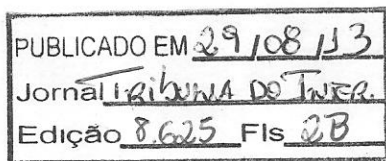 PUBLICADO EM 29/08/13
Jornal TRIBUNA DO INTER.
Edição 8.625 Fls 2B